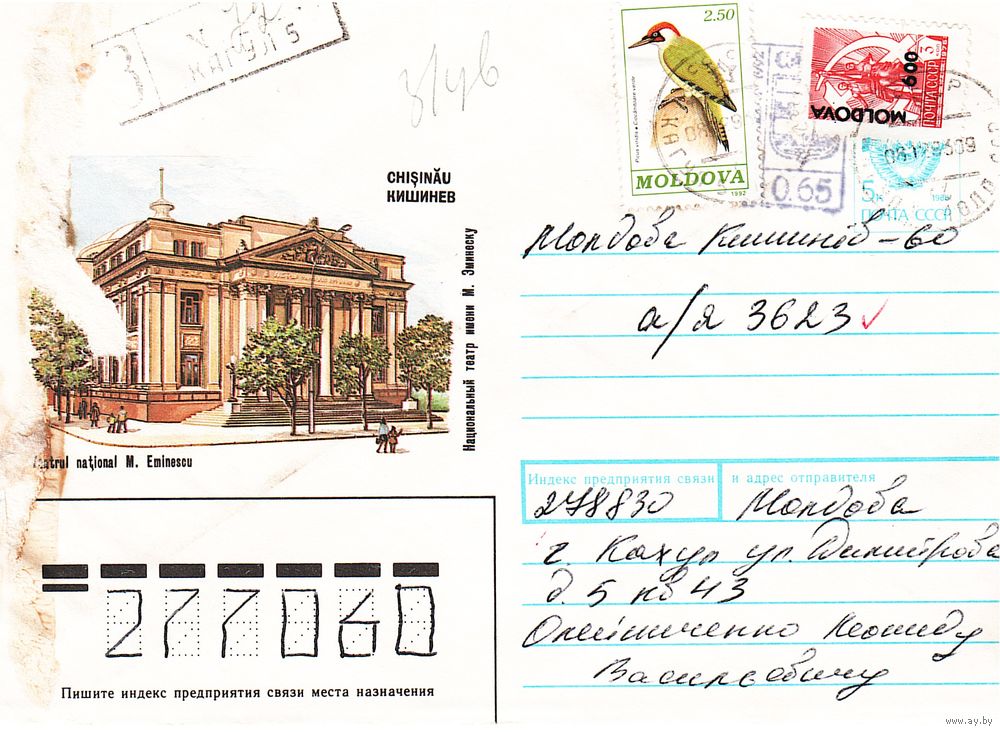 З
КАГУЛ 5
2.50
Picus viridis • Ciocănitoare verde
MOLDOVA
1992
0.65
600
MOLDOVA
ПОЧТА СССР
5к
1988
ПОЧТА СССР
CHIȘINĂU
КИШИНЕВ
Национальный театр имени М. Эминеску
atrul național M. Eminescu
Молдова Кишинёв-60
а/я 3623
Индекс предприятия связи и адрес отправителя
278830 Молдова
г. Кахул ул. Димитрова
д. 5 кв 43
Олейниченко Леониду
Васильевичу
277060
Пишите индекс предприятия связи места назначения
www.ay.by